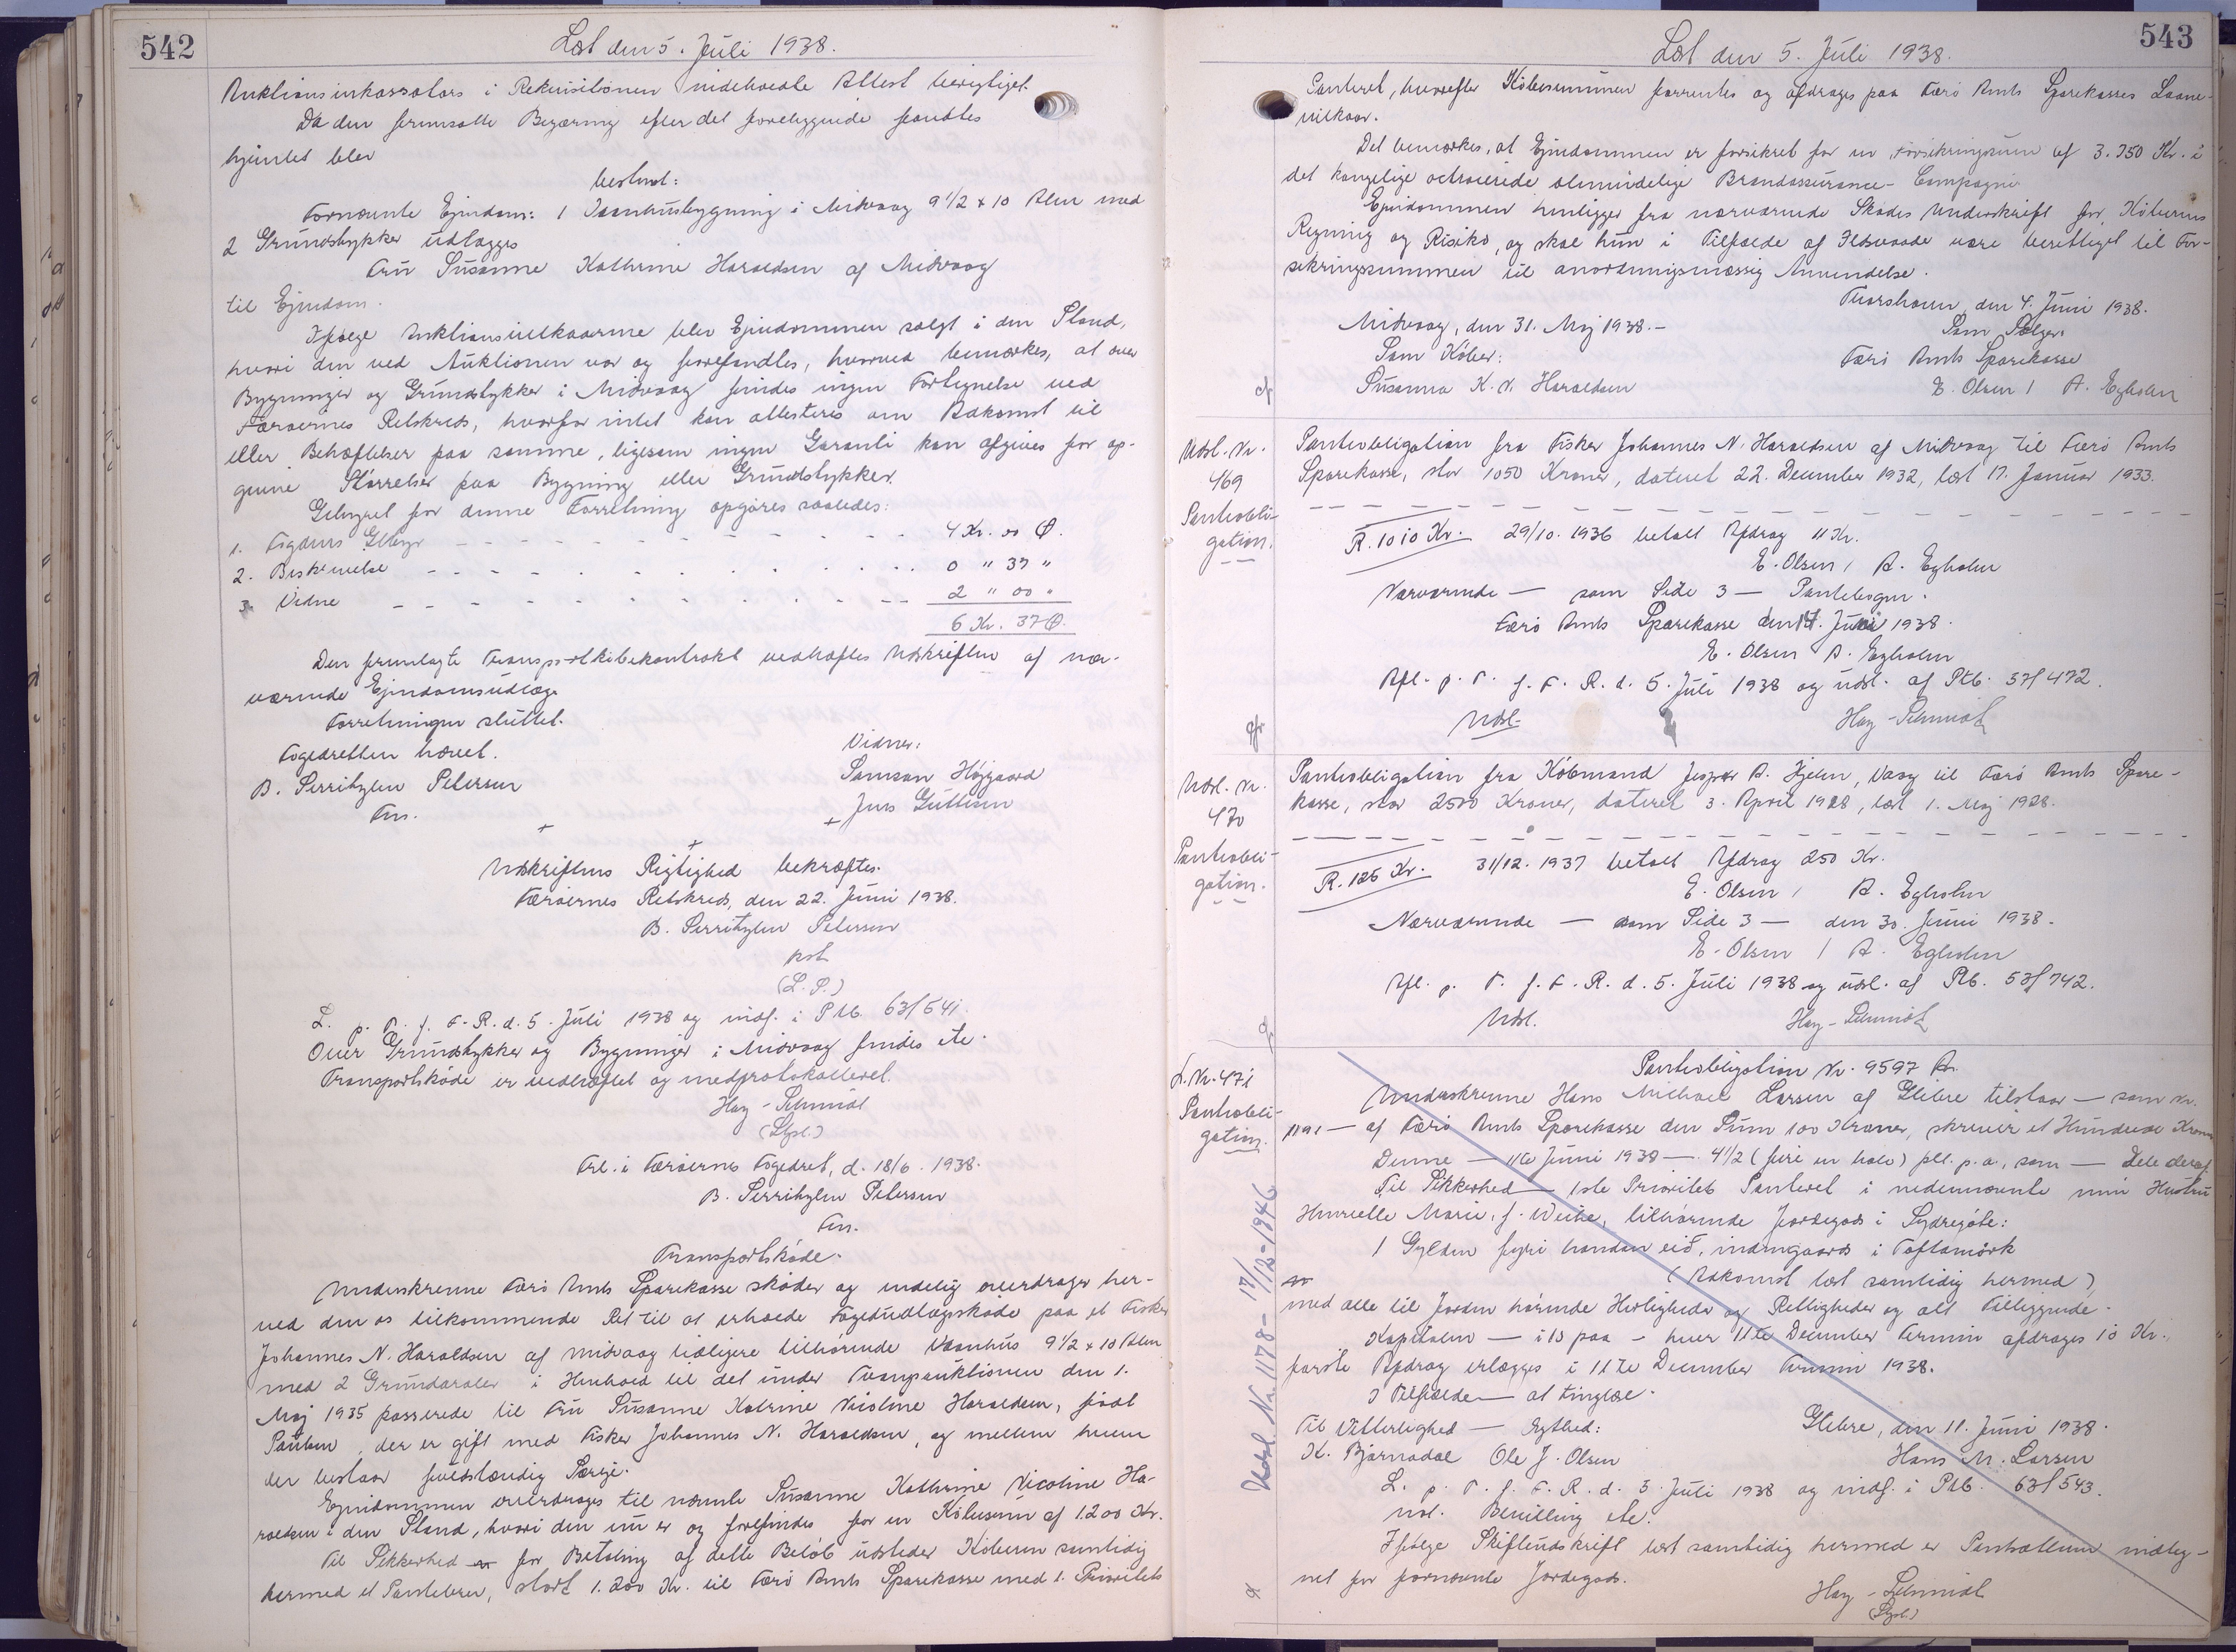 542
Læst den 5. Juli 1938.
Auktionsinkassators i Rekvisitionen indeholdte Attest berigtiget.
Da den fremsatte Begæring efter det foreliggende fandtes
hjemlet blev
bestemt:
Fornævnte Ejendom: 1 Vaanhusbygning i Midvaag 9 1/2 x 10 Alen med
2 Grundstykker udlægges
Fru Susanne Kathrine Haraldsen af Midvaag
til Ejendom.
Ifølge Auktionsvilkaarene blev Ejendommen solgt i den Stand,
hvori den ved Auktionen var og forefandtes, hvorved bemærkes, at over
Bygninger og Grundstykker i Midvaag findes ingen Fortegnelse ved
Færøernes Retskreds, hvorfor intet kan attesteres om Adkomst til
eller Behæftelser paa samme, ligesom ingen Garanti kan afgives for op-
givne Størrelser paa Bygning eller Grundstykker.
Gebyret for denne Forretning opgøres saaledes:
1. Fogdens Gebyr - - - - - - - - - - 4 Kr. 00 Ø.
2. Beskrivelse - - - - - - - - - - 0 " 37 "
3. Vidne - - - - - - - - - - 2 " 00 "
6 Kr. 37 Ø.
Den fremlagte Transportkøbekontrakt vedhæftes Udskriften af nær-
værende Ejendomsudlæg.
Forretningen sluttet.
Fogedretten hævet.
Vidner:
B. Serritzlew Petersen
Samson Højgaard
Fm.
Jens Guttesen
+ + +
Udskriftens Rigtighed bekræftes.
Færøernes Retskreds, den 22. Juni 1938.
B. Serritzlew Petersen
kst.
(L. S.)
L. p. T. f. F. R. d. 5. Juli 1938 og indf. i Ptb. 63f 541.
Over Grundstykker og Bygninger i Midvaag findes etc.
Transportskøde er vedhæftet og medprotokolleret.
Hay-Schmidt
(Stpl.)
Frl. i Færøernes Fogedret, d. 18/6. 1938.
B. Serritzlew Petersen
Fm.
Transportskøde.
Undeskrevne Færø Amts Sparekasse skøder og endelig overdrager her-
ved den os tilkommende Ret til at erholde Fogedudlægsskøde paa et Fisker
Johannes N. Haraldsen af Midvaag tidligere tilhørende Vaanhus 9 1/2 x 10 Alen
med 2 Grundarealer i Henhold til det under Tvangsauktionen den 1.
Maj 1935 passerede til Fru Susanne Katrine Nicoline Haraldsen, født
Poulsen, der er gift med Fisker Johannes N. Haraldsen, og mellem hvem
der bestaar fuldstændig Særeje.
Ejendommen overdrages til nævnte Susanne Kathrine Nicoline Ha-
raldsen i den Stand, hvori den nu er og forefindes for en Købesum af 1.200 Kr.
Til Sikkerhed for Betaling af dette Beløb udsteder Køberen samtidig
hermed et Pantebrev, stort 1.200 Kr. til Færø Amts Sparekasse med 1. Prioritets
543
Læst den 5. Juli 1938.
Panteret, hvorefter Købesummen forrentes og afdrages paa Færø Amts Sparekasses Laane-
vilkaar.
Det bemærkes, at Ejendommen er forsikret for en Forsikringssum af 3.750 Kr. i
det kongelige octroierede almindelige Brandassurance-Compagni
Ejendommen henligger fra nærværende Skødes Underskrift for Køberens
Regning og Risiko, og skal hun i Tilfælde af Ildsvaade være berettiget til For-
sikringssummen til anordningsmæssig Anvendelse.
Thorshavn, den 4. Juni 1938.
Midvaag, den 31. Maj 1938.-
Som Sælger:
Som Køber:
Færø Amts Sparekasse
Susanna K. N. Haraldsen
E. Olsen / A. Egholm
Udsl. Nr.
469
Pantobli-
gation.
Pantobligation fra Fisker Johannes N. Haraldsen af Midvaag til Færø Amts
Sparekasse, stor 1050 Kroner, dateret 22. December 1932, læst 17. Januar 1933.
R. 1010 Kr. 29/10. 1936 betalt Afdrag 11 Kr.
E. Olsen / A. Egholm
Nærværende — som Side 3 — Pantebogen.
Færø Amts Sparekasse den 14. Juni 1938.
E. Olsen A. Egholm
Afl. p. T. f. F. R. d. 5. Juli 1938 og udsl. af Ptb. 57f 472.
Udsl.
Hay-Schmidt
Udsl. Nr.
470
Pantobli-
gation.
Pantobligation fra Købmand Jesper A. Hjelm, Vaag til Færø Amts Spare-
kasse, stor 2500 Kroner, dateret 3. April 1928, læst 1. Maj 1928.
R. 125 Kr. 31/12. 1937 betalt Afdrag 250 Kr.
E. Olsen / A. Egholm
Nærværende — som Side 3 — den 30. Juni 1938.
E. Olsen / A. Egholm
Afl. p. T. f. F. R. d. 5. Juli 1938 og udsl. af Ptb. 53f 742.
Udsl.
Hay-Schmidt
L. Nr. 471
Pantobli-
gation.
Udsl. Nr. 1178 - 17/12-1946
Pantobligation Nr. 9597 A.
Undeskrevne Hans Michael Larsen af Glibre tilstaar — som Nr.
— af Færø Amts Sparekasse den Sum 100 Kroner, skriver et Hundrede Kroner
Denne — 11te Juni 1938 — 4 1/2 (fire en halv) pCt. p. a., som — Dele deraf.
Til Sikkerhed — 1ste Prioritets Panteret i nedennævnte min Hustru
Henriette Marie, f. Weihe, tilhørende Jordegods i Sydregøte:
1 Gylden fyri handan eið, indengaards i Toftamørk
(Adkomst læst samtidig hermed)
med alle til Jorden hørende Herligheder og Rettigheder og alt Tilliggende.
Kapitalen — i 10 paa - hver 11te December Termin afdrages 10 Kr.,
første Afdrag erlægges i 11te December Termin 1938.
I Tilfælde — at tinglæse.
Til Vitterlighed — Egthed:
Glibre, den 11. Juni 1938.
K. Bjarnadal Ole J. Olsen
Hans M. Larsen
L. p. T. f. F. R. d. 5. Juli 1938 og indf. i Ptb. 63f 543.
Bevilling etc.
Ifølge Skifteudskrift læst samtidig hermed er Pantsætteren indteg-
net for fornævnte Jordegods.
Hay-Schmidt
(Stpl.)